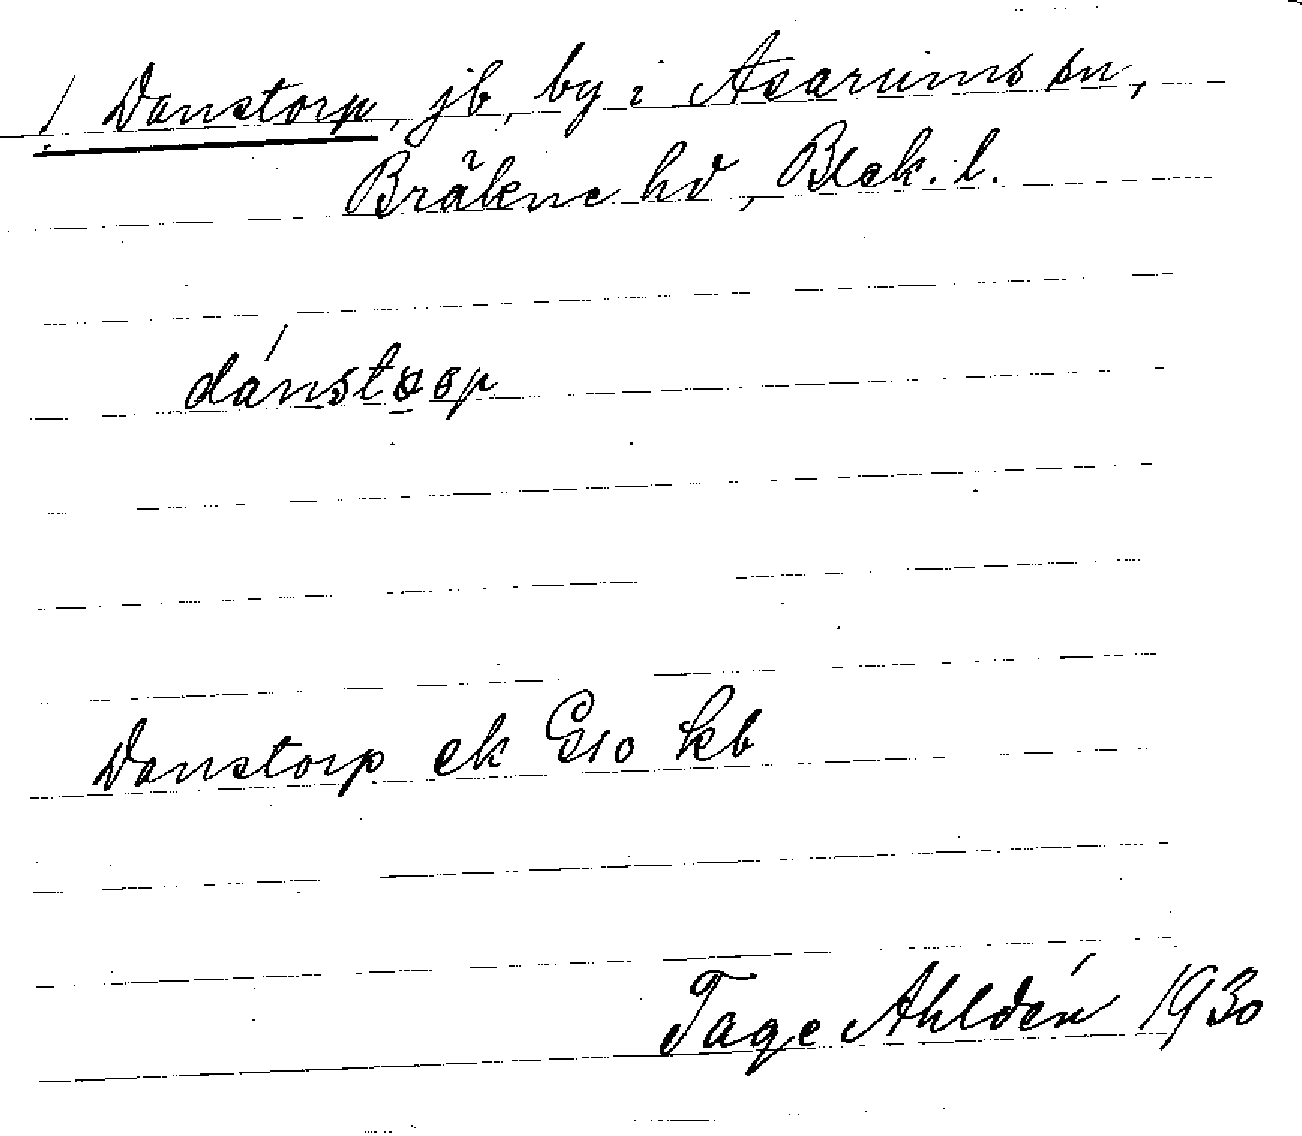 ! Danstorp, jb, by i Asarums sn,
Bräkne hd, Blek. l.
Danstorp ek Gs10 kb
Tage Ahldén 1930